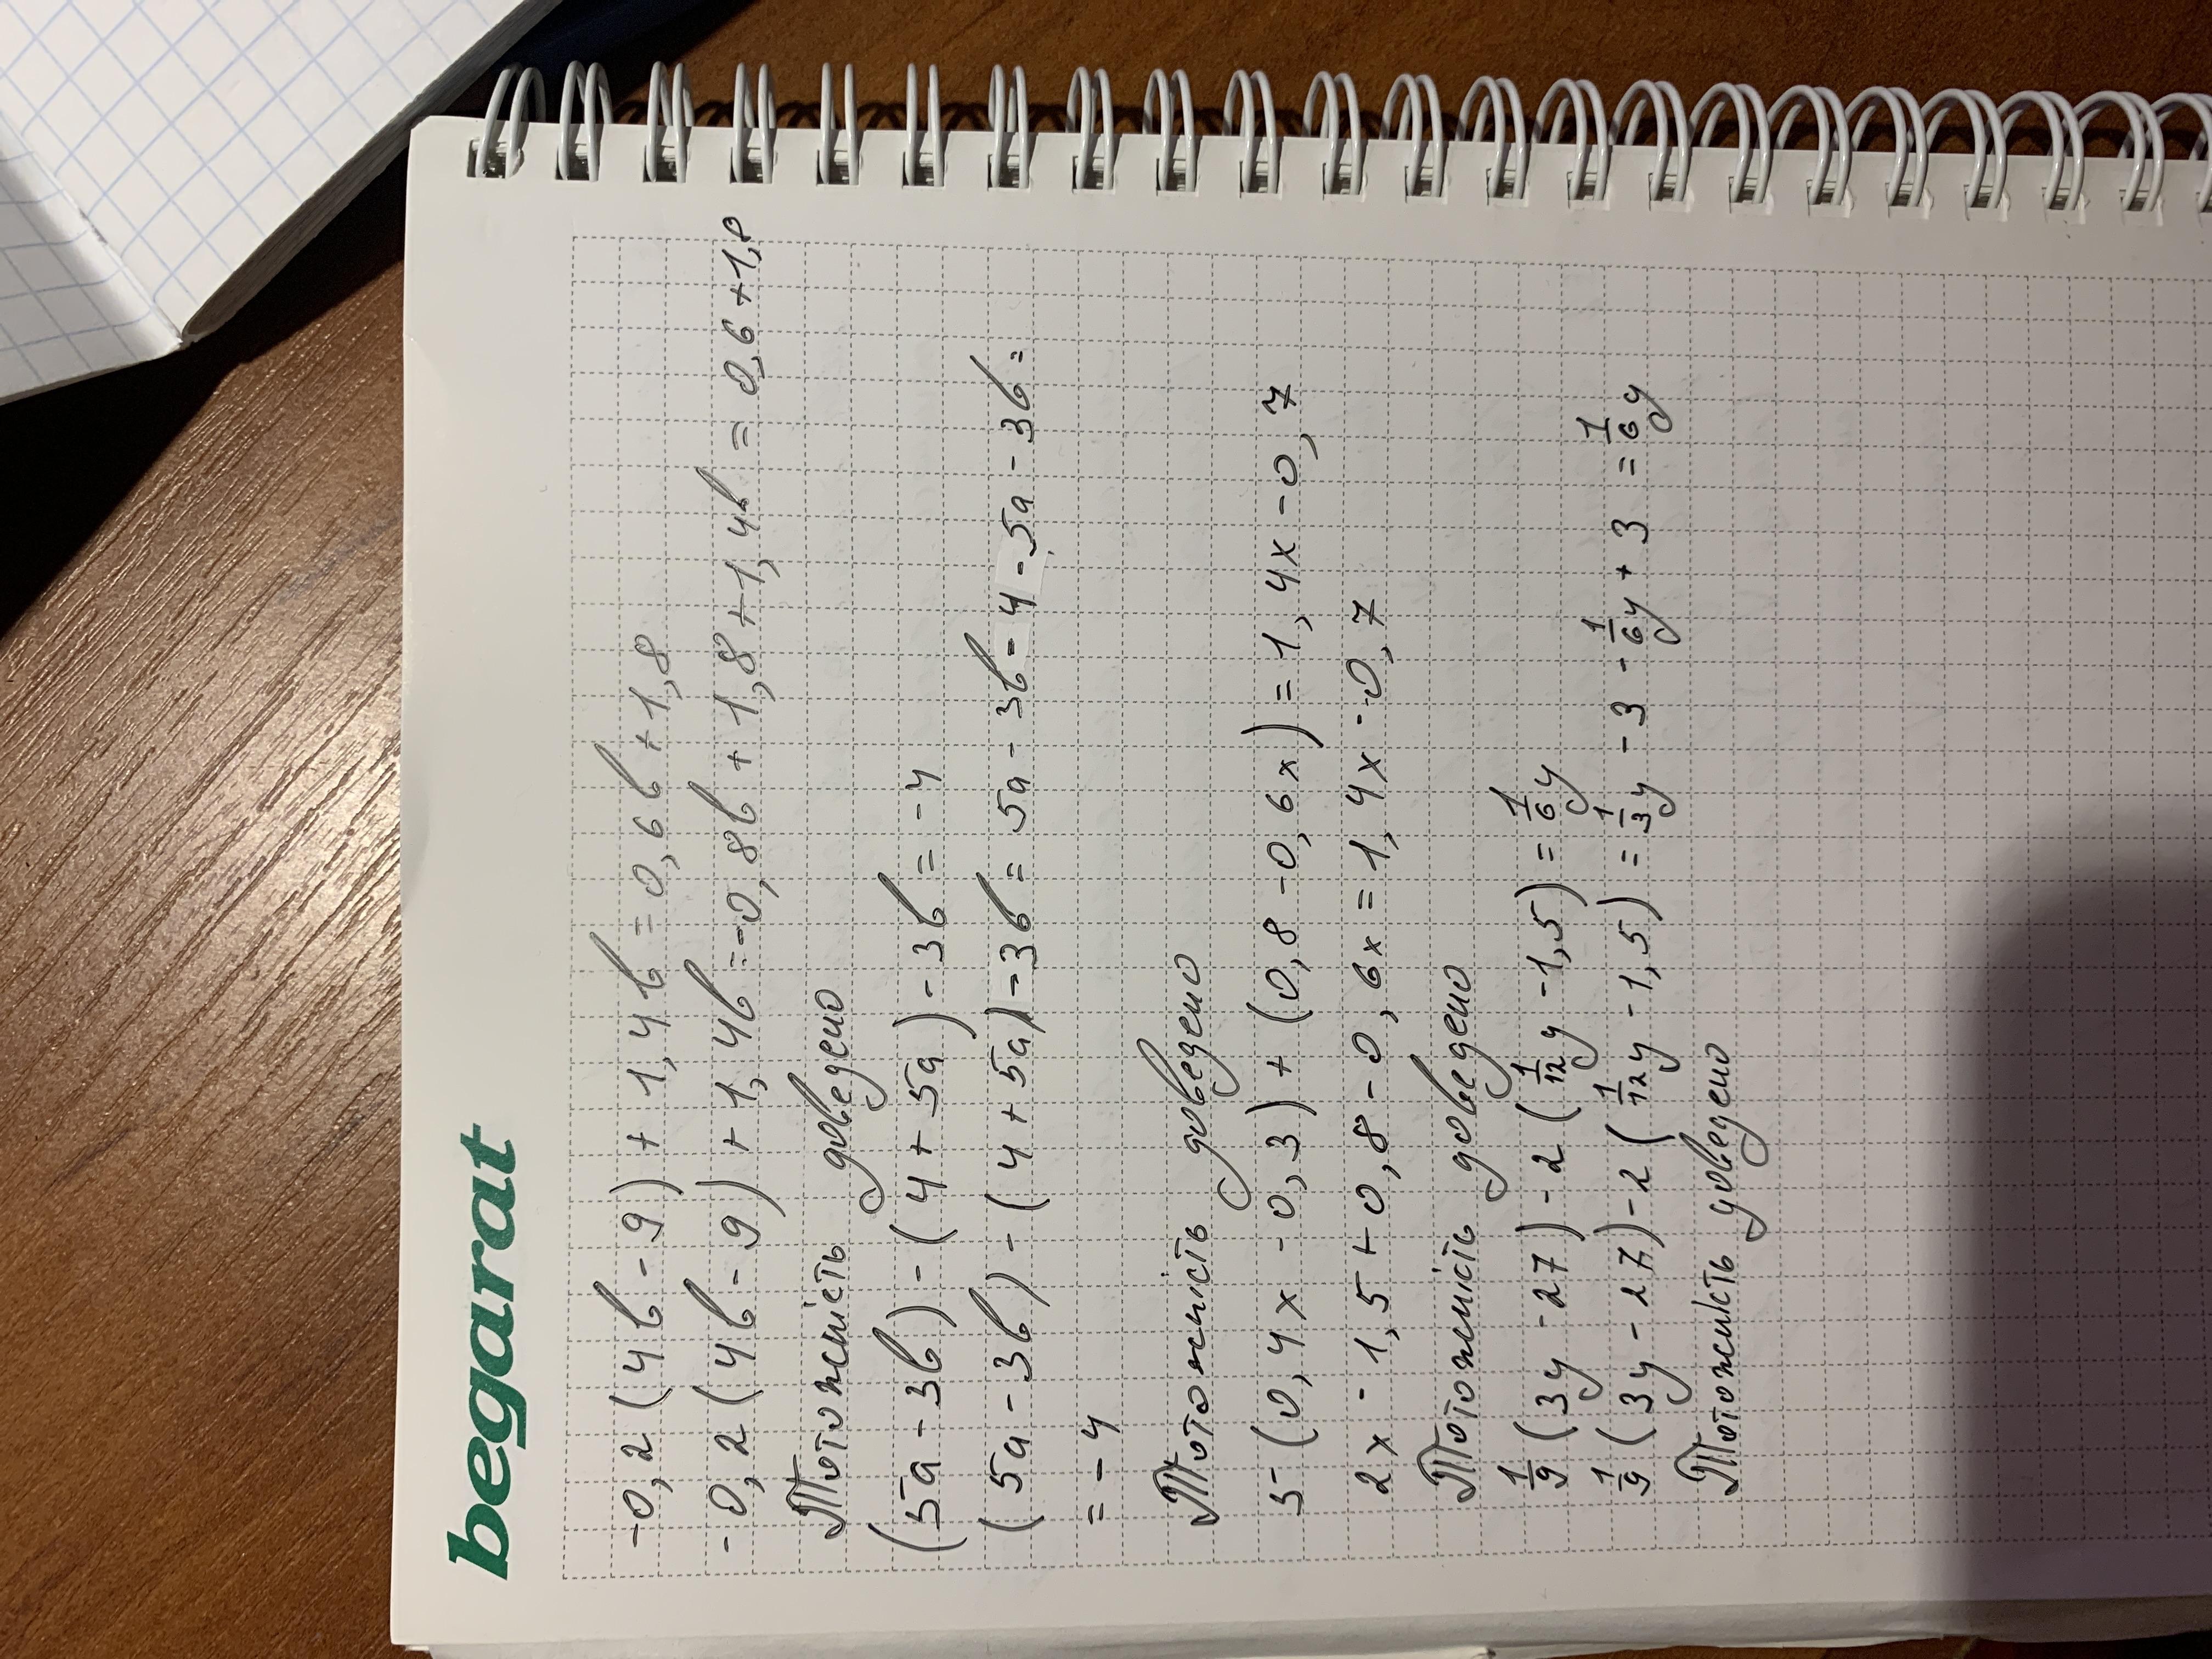 begarat
-0,2(4b-9)+1,4b=0,6b+1,8
-0,2(4b-9)+1,4b=-0,8b+1,8+1,4b=0,6+1,8
Тотожність доведено
(5a-3b)-(4+5a)-3b=-4
(5a-3b)-(4+5a)-3b=5a-3b-4-5a-3b=
=-4
Тотожність доведено
5-(0,4x-0,3)+(0,8-0,6x)=1,4x-0,7
2x-1,5+0,8-0,6x=1,4x-0,7
Тотожність доведено
1/9(3y-27)-2(1/12y-1,5)=1/6y
1/9(3y-27)-2(1/12y-1,5)=1/3y-3-1/6y+3=1/6y
Тотожність доведено